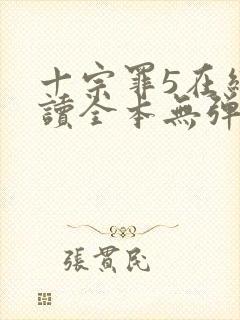 十宗罪5在線
讀全本無彈
張貫民